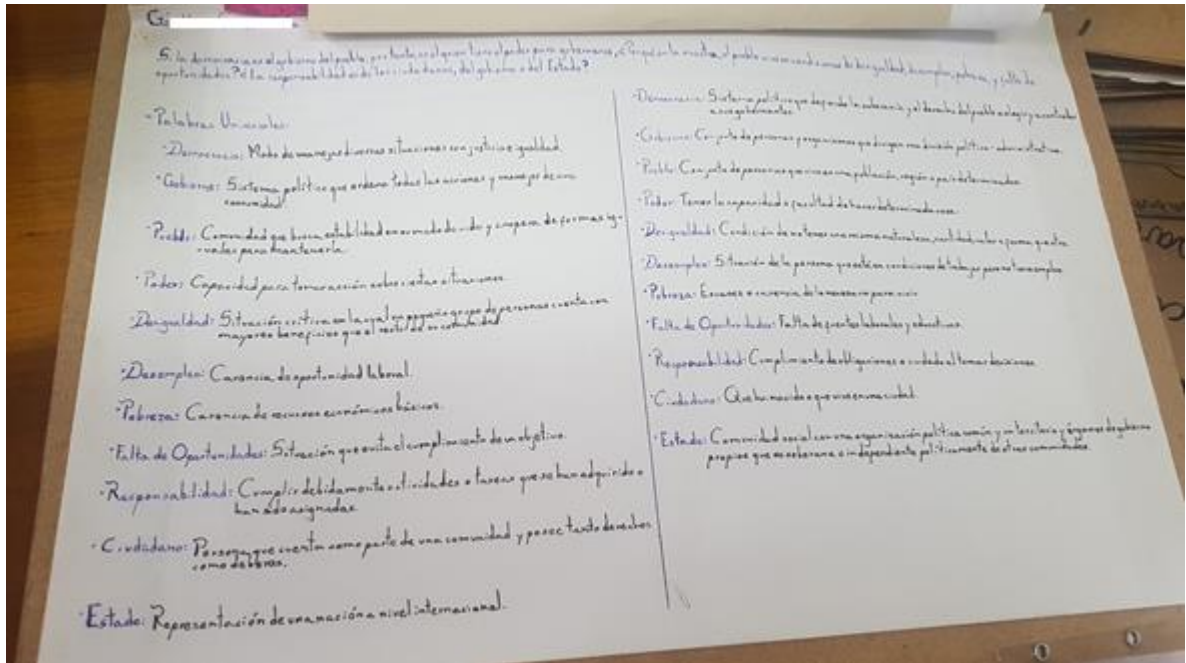 Si la democracia es el gobierno del pueblo, por tanto es el quien tiene el poder para gobernarse, ¿Por qué en la nuestra, el pueblo vive en condiciones de desigualdad, desempleo, pobreza, y falta de
oportunidades? ¿La responsabilidad es de los ciudadanos, del gobierno o del Estado?
·Palabras
·Democracia: Modo de manejar diversas situaciones con justicia e igualdad
·Gobierno: Sistema político que ordena todas las acciones y manejos de una
comunidad
·Pueblo: Comunidad que busca estabilidad en su modo de vida y coopera de formas ig-
-uales para mantenerla.
·Poder: Capacidad para tomar acción sobre ciertas situaciones.
·Desigualdad: Situación crítica en la cual un pequeño grupo de personas cuenta con
mayores beneficios que el resto de su comunidad
·Desempleo: Carencia de oportunidad laboral.
·Pobreza: Carencia de recursos económicos básicos.
·Falta de Oportunidades: Situación que evita el cumplimiento de un objetivo.
·Responsabilidad: Cumplir debidamente actividades o tareas que se han adquirido o
han sido asignadas
·Ciudadano: Persona que cuenta como parte de una comunidad y posee tanto derechos
como deberes.
·Estado: Representación de una nación a nivel internacional.
·Democracia: Sistema político que defiende la soberanía y el derecho del pueblo a elegir y a controlar
a sus gobernantes.
·Gobierno: Conjunto de personas y organismos que dirigen una división político-administrativa.
·Pueblo: Conjunto de personas que vive en una población, región o país determinados.
·Poder: Tener la capacidad o facultad de hacer determinada cosa.
·Desigualdad: Condición de no tener una misma naturaleza, cantidad, valor o forma que otro
·Desempleo: Situación de la persona que está en condiciones de trabajar pero no tiene empleo
·Pobreza: Escasez o carencia de lo necesario para vivir
·Falta de Oportunidades: Falta de puestos laborales y educativos.
·Responsabilidad: Cumplimiento de obligaciones o cuidado al tomar decisiones
·Ciudadano: Que ha nacido o que vive en una ciudad.
·Estado: Comunidad social con una organización política común y un territorio y órganos de gobierno
propios que es soberana e independiente políticamente de otras comunidades.